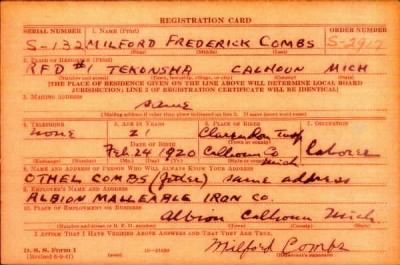 REGISTRATION CARD
SERIAL NUMBER 1. NAME (Print) ORDER NUMBER
S-132 MILFORD FREDERICK COMBS S-2917
(First) (Middle) (Last)
2. PLACE OF RESIDENCE (Print)
RFD #1 TEKONSHA CALHOUN MICH
(Number and street) (Town, township, village, or city) (County) (State)
[THE PLACE OF RESIDENCE GIVEN ON THE LINE ABOVE WILL DETERMINE LOCAL BOARD
JURISDICTION; LINE 2 OF REGISTRATION CERTIFICATE WILL BE IDENTICAL]
3. MAILING ADDRESS
same
[Mailing address if other than place indicated on line 2. If same insert word same]
4. TELEPHONE 5. AGE IN YEARS 6. PLACE OF BIRTH 7. OCCUPATION
none 21 Clarendon Twp
DATE OF BIRTH (Town or county)
Feb 24 1920 Calhoun Co Mich laborer
(Exchange) (Number) (Mo.) (Day) (Yr.) (State or country)
8. NAME AND ADDRESS OF PERSON WHO WILL ALWAYS KNOW YOUR ADDRESS
OTHEL COMBS (father) same address
9. EMPLOYER'S NAME AND ADDRESS
ALBION MALLEABLE IRON CO.
10. PLACE OF EMPLOYMENT OR BUSINESS
Albion Calhoun Mich.
(Number and street or R. F. D. number) (Town) (County) (State)
I AFFIRM THAT I HAVE VERIFIED ABOVE ANSWERS AND THAT THEY ARE TRUE.
D. S. S. Form 1
Milford Combs